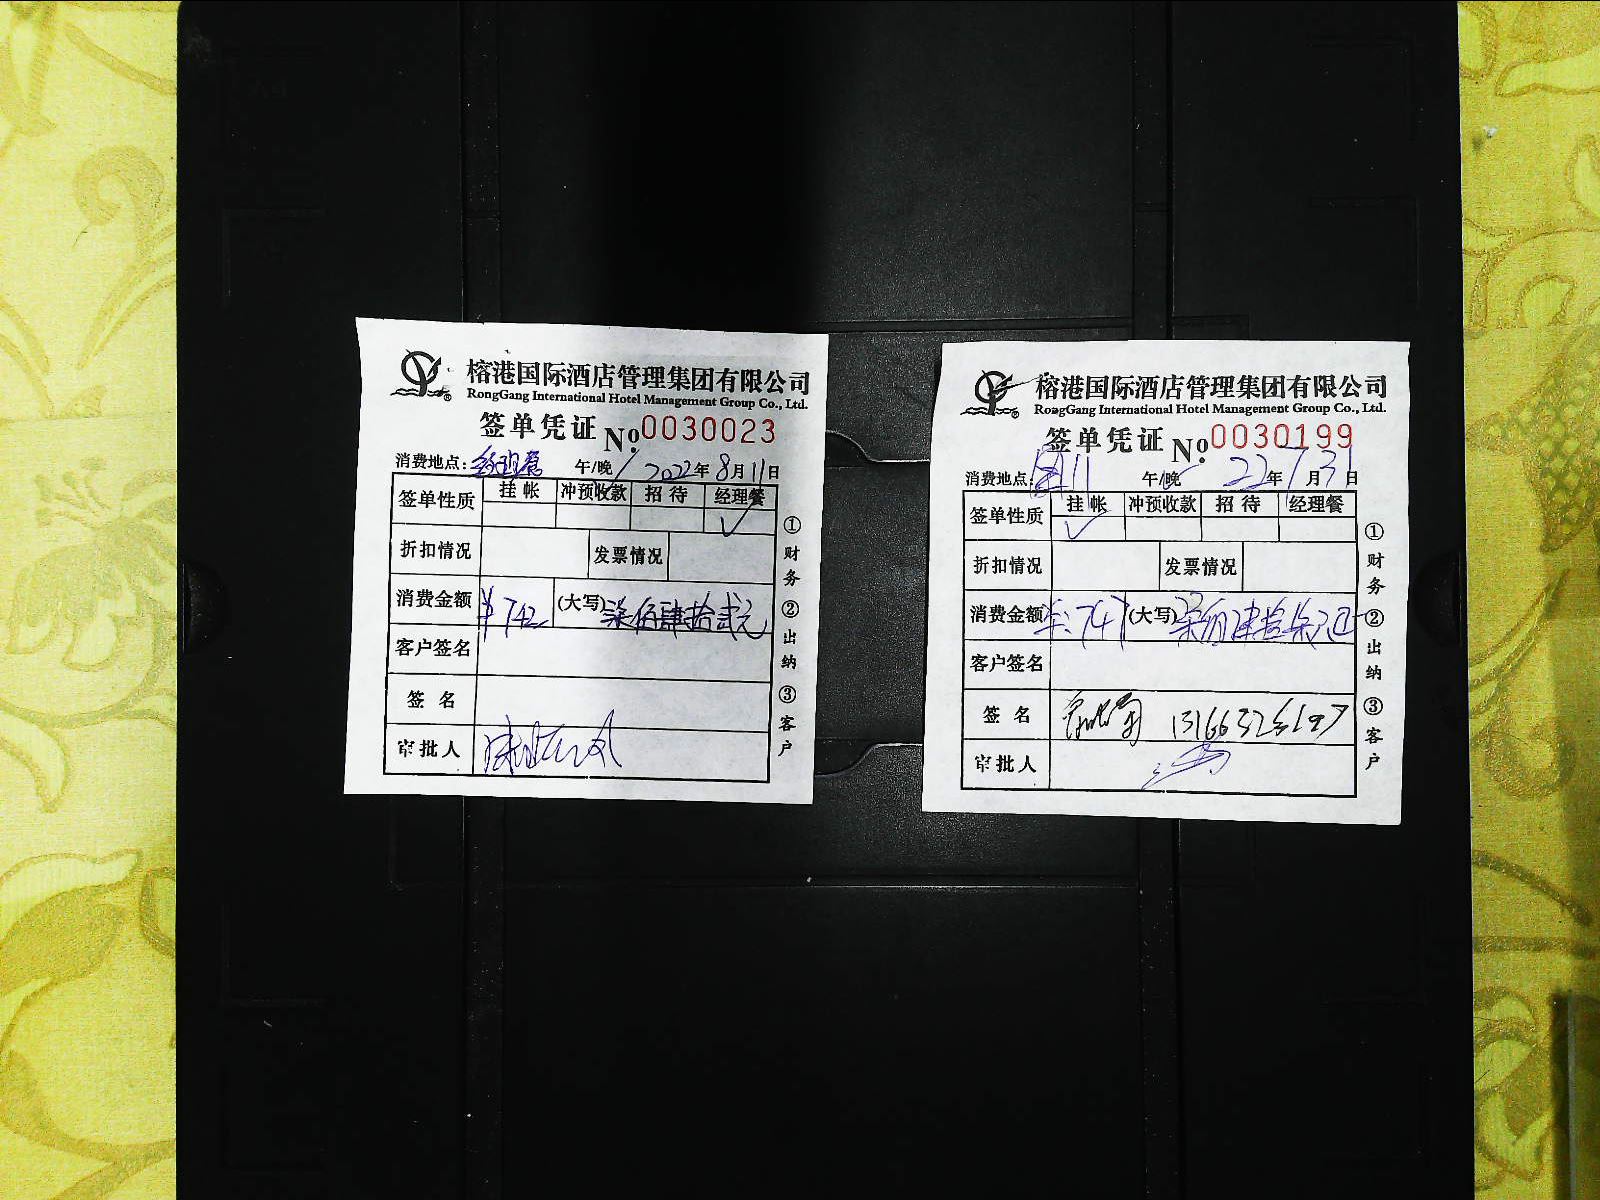 榕港国际酒店管理集团有限公司
RongGang International Hotel Management Group Co., Ltd.
签单凭证 No. 0030023
消费地点: 午/晚 2022年8月11日
签单性质 挂帐 冲预收款 招待 经理餐
✓
折扣情况 发票情况
消费金额 ¥742 (大写) 柒佰肆拾贰元
客户签名
签名
审批人
①财务 ②出纳 ③客户
榕港国际酒店管理集团有限公司
RongGang International Hotel Management Group Co., Ltd.
签单凭证 No. 0030199
消费地点: 午/晚 22年7月31日
签单性质 挂帐 冲预收款 招待 经理餐
✓
折扣情况 发票情况
消费金额 747 (大写)
客户签名
签名
审批人
①财务 ②出纳 ③客户